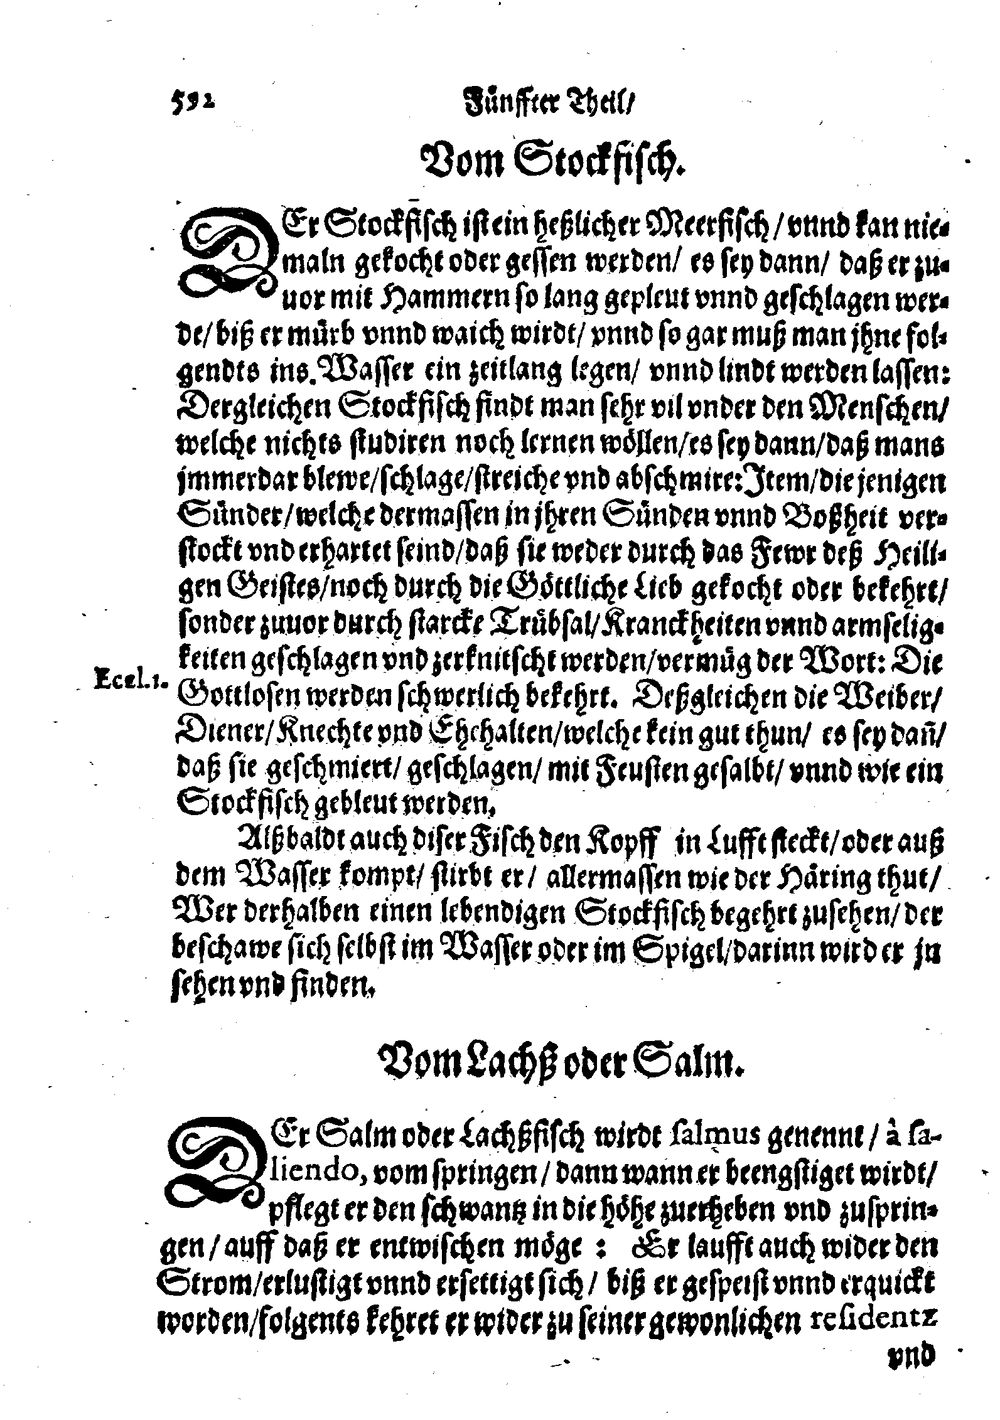 592 Fünffter Theil/
Vom Stockfisch.
DEr Stockfisch ist ein heßlicher Meerfisch / vnnd kan nie-
maln gekocht oder gessen werden/ es sey dann/ daß er zu-
uor mit Hammern so lang gepleut vnnd geschlagen wer-
de/ biß er mürb vnnd waich wirdt/ vnnd so gar muß man jhne fol-
gendts ins Wasser ein zeitlang legen/ vnnd lindt werden lassen:
Dergleichen Stockfisch findt man sehr vil vnder den Menschen/
welche nichts studiren noch lernen wöllen/es sey dann/daß mans
jmmerdar blewe/schlage/streiche vnd abschmire: Item/die jenigen
Sünder/welche dermassen in jhren Sünden vnnd Boßheit ver-
stockt vnd erhartet seind/daß sie weder durch das Fewr deß Heili-
gen Geistes/noch durch die Göttliche Lieb gekocht oder bekehrt/
sonder zuuor durch starcke Trübsal/Kranckheiten vnnd armselig-
keiten geschlagen vnd zerknitscht werden/vermüg der Wort: Die
Eccl.1.
Gottlosen werden schwerlich bekehrt. Deßgleichen die Weiber/
Diener/Knechte vnd Ehehalten/welche kein gut thun/ es sey dañ/
daß sie geschmiert/ geschlagen/ mit Feusten gesalbt/ vnnd wie ein
Stockfisch gebleut werden.
Alßbaldt auch diser Fisch den Kopff in Lufft steckt/oder auß
dem Wasser kompt/ stirbt er/ allermassen wie der Häring thut/
Wer derhalben einen lebendigen Stockfisch begehrt zusehen/ der
beschawe sich selbst im Wasser oder im Spigel/darinn wird er jn
sehen vnd finden.
Vom Lachß oder Salm.
DEr Salm oder Lachßfisch wirdt salmus genennt / à sa-
liendo, vom springen / dann wann er beengstiget wirdt/
pflegt er den schwantz in die höhe zuerheben vnd zusprin-
gen / auff daß er entwischen möge : Er laufft auch wider den
Strom/erlustigt vnnd ersettigt sich / biß er gespeist vnnd erquickt
worden/folgents kehret er wider zu seiner gewonlichen residentz
vnd